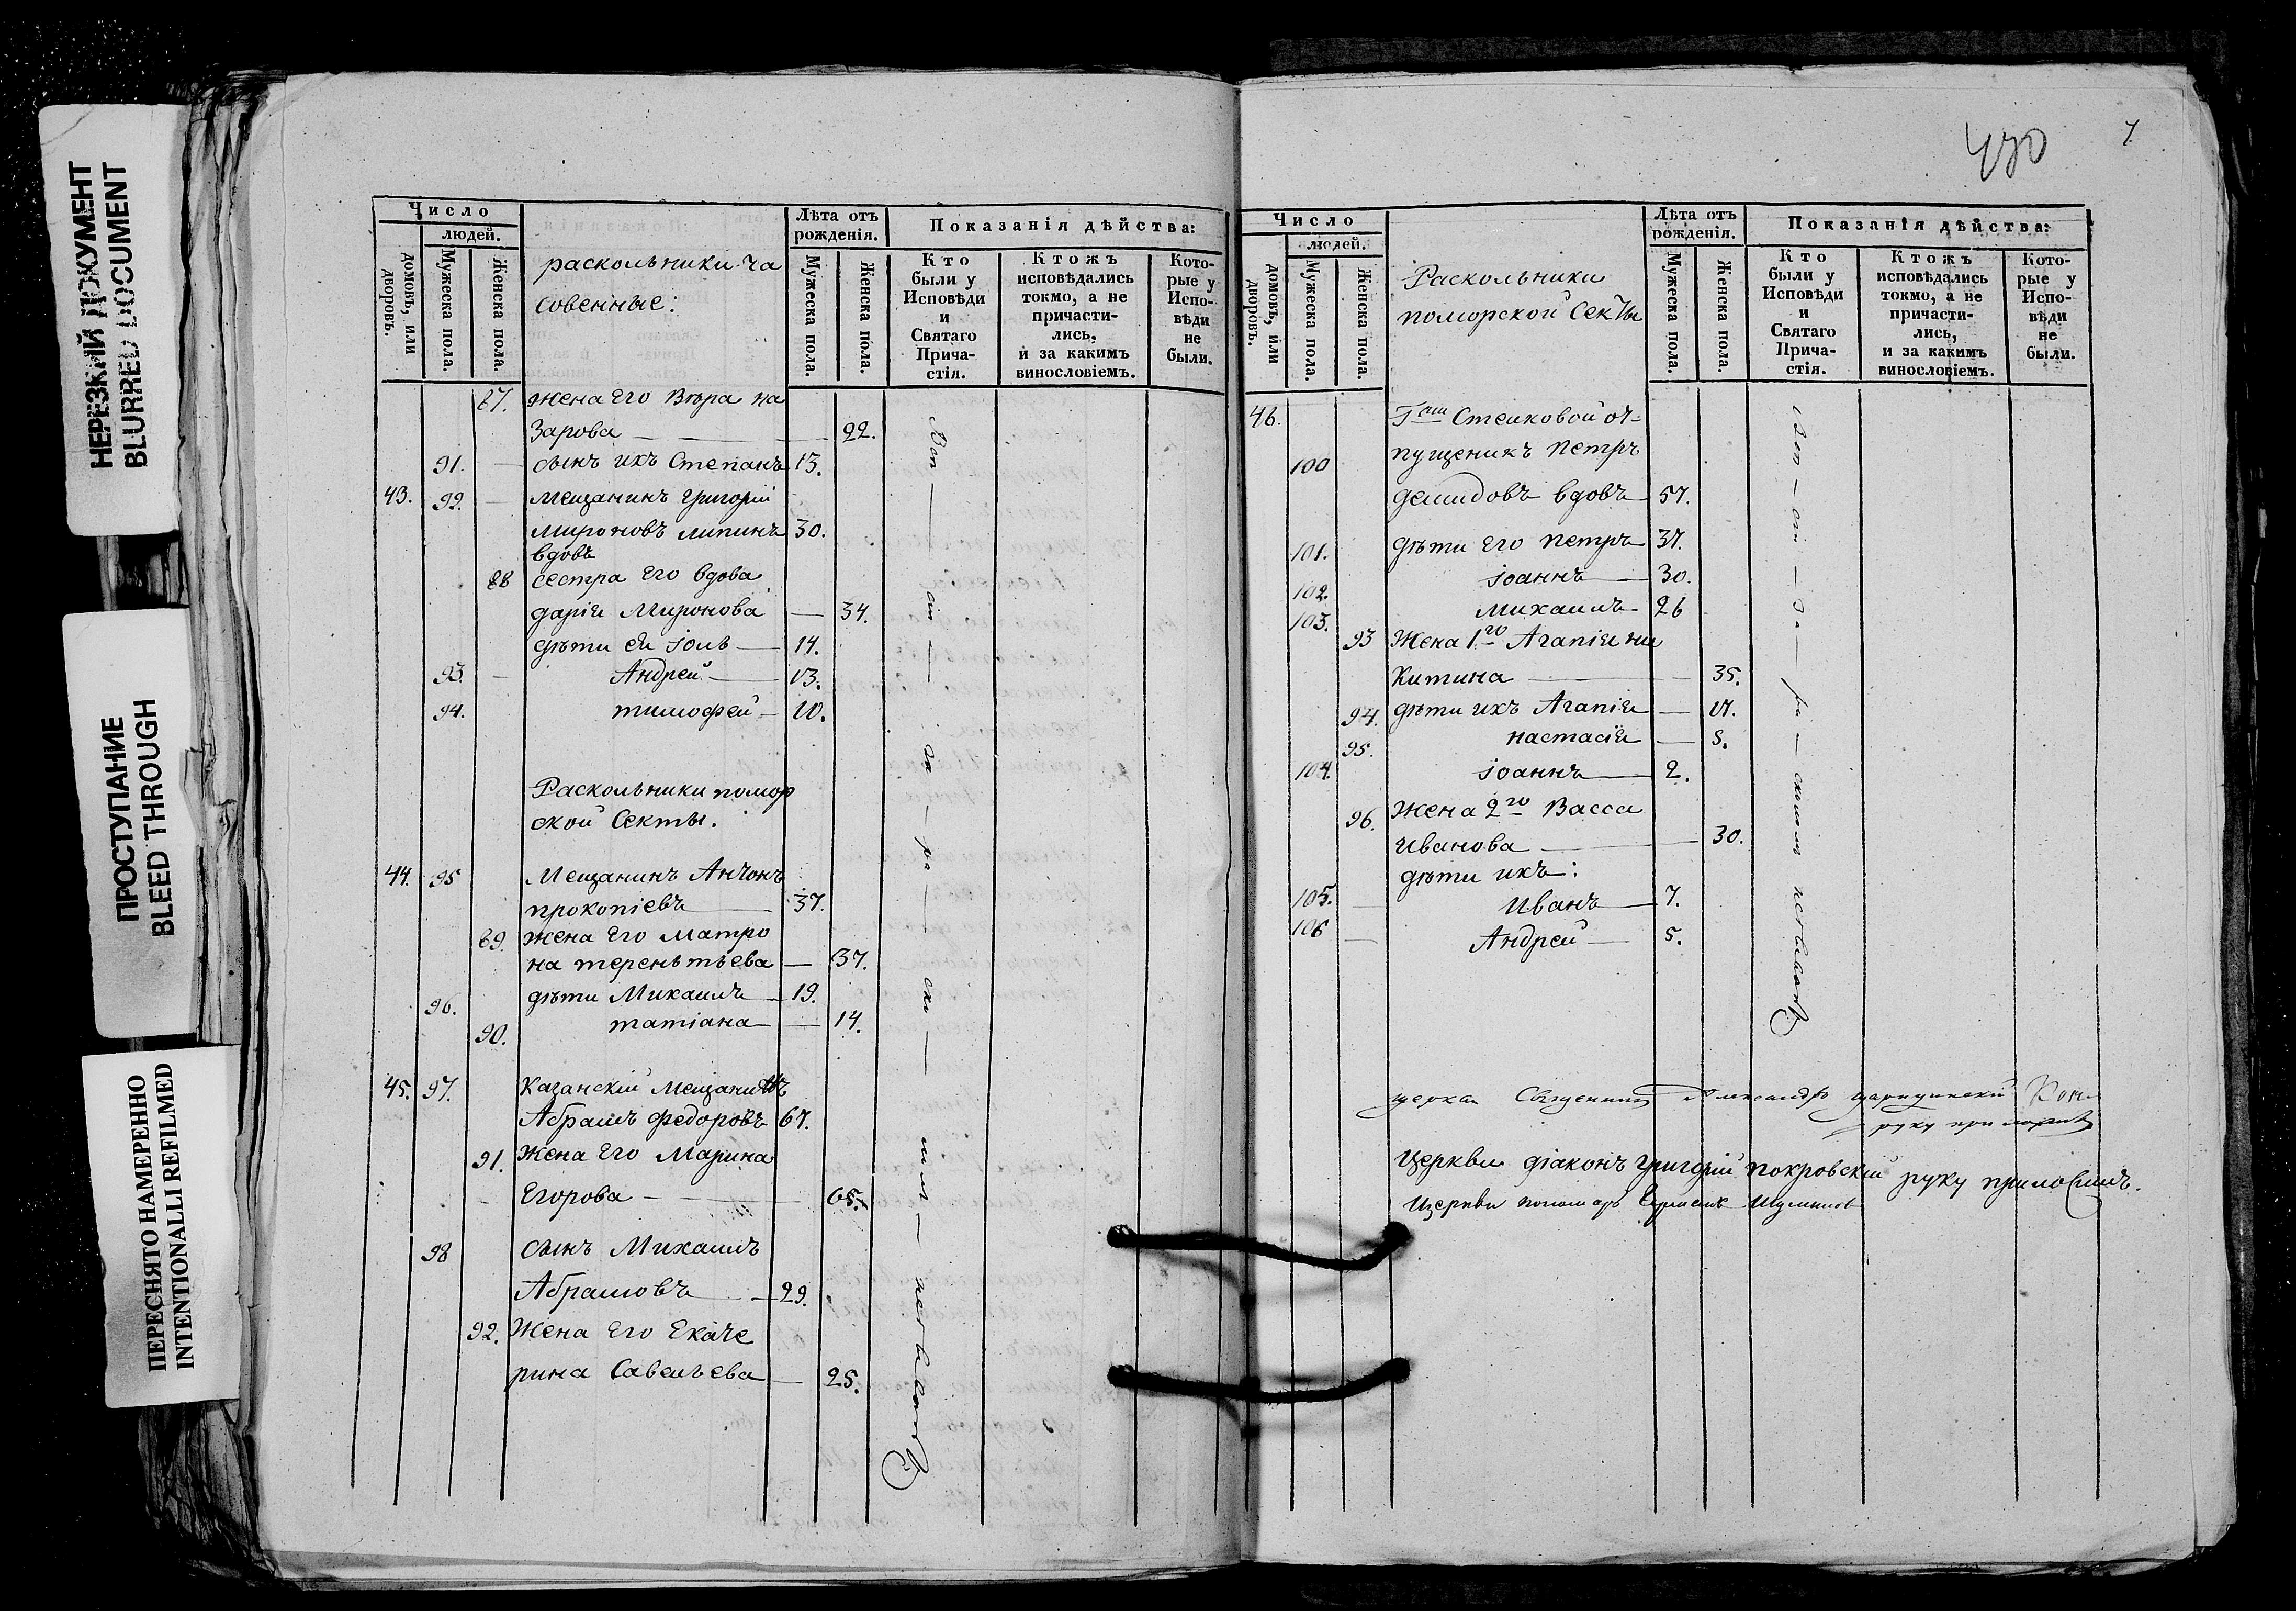 НЕРЕЗКИЙ ДОКУМЕНТ
BLURRED DOCUMENT
ПРОСТУПАНИЕ
BLEED THROUGH
ПЕРЕСНЯТО НАМЕРЕННО
INTENTIONALLI REFILMED
Число
людей.
домовъ, или дворовъ.
Мужеска пола.
Женска пола.
раскольники ча
совенные:
Лѣта отъ рожденія.
Мужеска пола.
Женска пола.
Показанія дѣйства:
Кто были у Исповѣди и Святаго Прича-стія.
Ктожъ исповѣдались токмо, а не причасти-лись, и за какимъ винословіемъ.
Кото-рые у Испо-вѣди не были.
87. жена Его Вѣра на
Зарова — 22.
91. — сынъ ихъ Степанъ 13.
43. 92. — мещанинъ григорій
Мироновъ липинъ 30.
вдовъ
88 сестра Его вдова
дарія Миронова — 34.
дѣти ея — 14.
93. — Андрей — 13.
94. тимофей — 10.
Раскольники помор
ской Секты.
44. 95 Мещанинъ Антонъ
прокопіевъ — 37.
89. жена Его матро
на терентьева — 37.
96. дѣти Михаилъ — 19.
90. татіана — 14.
45. 97. Казанскій мещанинъ
Абрамъ федоровъ 67.
91. Жена Его Марина
Егорова — 65.
98 сынъ Михаилъ
Абрамовъ — 29.
92. Жена Его Екате
рина Савельева — 25.
За — ра — ско — ломъ — небыли
430
7
Число
людей.
домовъ, или дворовъ.
Мужеска пола.
Женска пола.
Раскольники
поморской Секты
Лѣта отъ рожденія.
Мужеска пола.
Женска пола.
Показанія дѣйства:
Кто были у Исповѣди и Святаго Прича-стія.
Ктожъ исповѣдались токмо, а не причасти-лись, и за какимъ винословіемъ.
Кото-рые у Испо-вѣди не были.
46. Гжи от=
100 пущеникъ петръ
демидовъ вдовъ 57.
101. дѣти Его петръ 37.
102. іоаннъ — 30.
103. михаилъ 26
93 Жена 1го Агапія ни
китина — 35.
94. дѣти ихъ Агапія —
95. настасія — 8.
104. іоаннъ — 2.
96. жена 2го Васса
иванова — 30.
дѣти ихъ:
105. — Иванъ — 7.
106 — Андрей — 5.
За — ра — сколомъ небыли
Священникъ Александръ
руку приложилъ
Церкви діаконъ григорій покровскій руку приложилъ.
Церкви пономарь